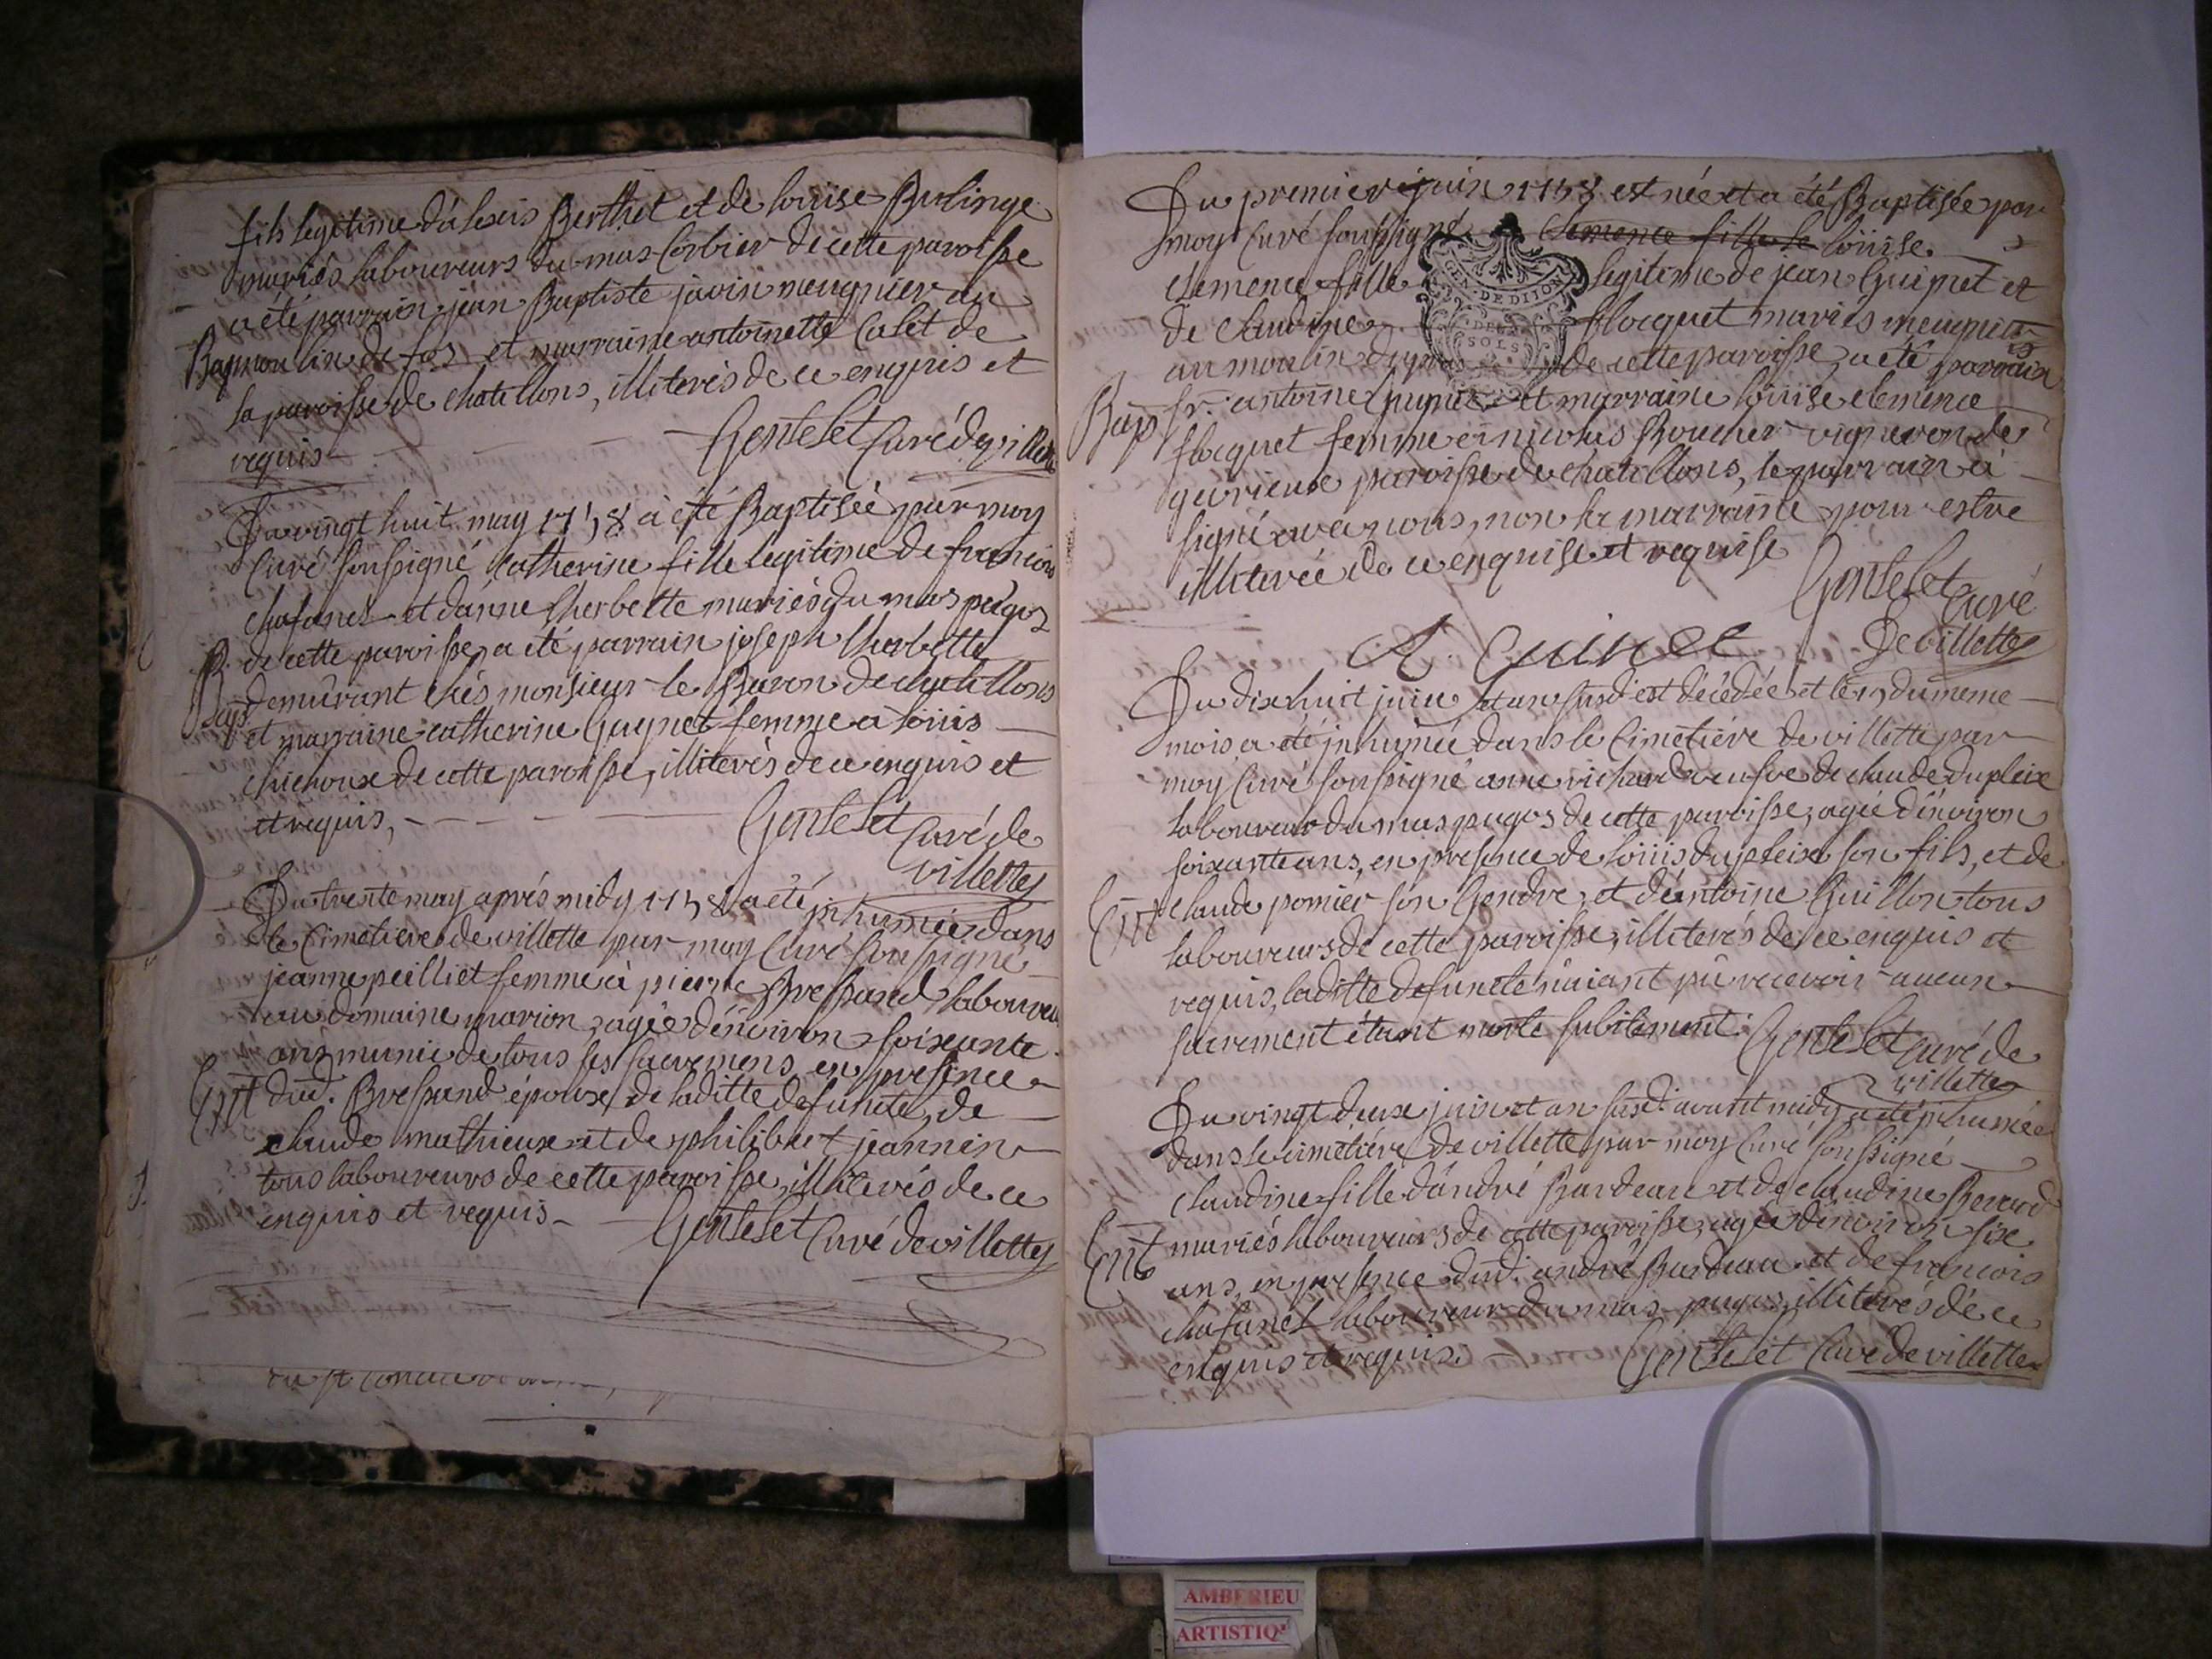 fils legitime d'alexis Berthet et de loüise Bulinge
mariés laboureurs du mas Corbier de cette paroisse
a été parrain jean Baptiste javin meugnier au
Bap moulin de fos et marraine antoinette Calet de
la paroisse de chatillons, illiterés de ce enquis et
requis Gentelet Curé de villette
Du vingt huit may 1758 a été Baptisée par moy
Curé soussigné Catherine fille legitime de francois
chafanel et d'anne lherbette mariés du mas pugos
B. de cette paroisse, a été parrain joseph lherbette
Bap demûrant chés monsieur le Baron de chatillons
et marraine catherine Guynet femme a loüis
chichoux de cette paroisse, illiterés de ce enquis et
et requis, Gentelet Curé de
villettes
Du trente may aprés midy 1758 a été inhumée dans
le Cimetiere de villette par moy Curé soussigné
jeanne peilliet femme à pierre Bressand laboureur
au domaine marion, agée d'énviron soixante
ans munie de tous ses sacremens en presence
Ent dud. Bressand époux de laditte defuncte, de
claude mathieux et de philibert jeannin
tous laboureurs de cette paroisse, illiterés de ce
enquis et requis Gentelet Curé de villettes
Du premier juin 1758 est née et a été Baptisée par
moy Curé soussigné Clemence fille le loüise
clemence fille legitime de jean Guinet et
GEN. DE DIJON
de Claudine floquet mariés meugniers
DEUX SOLS
au moulin de cette paroisse, a été parrain
Bap sr. antoine et marraine loüise clemence
floquet femme a nicolas Boucher vigneron de
gevrieux paroisse de chatillons, le parrain a
signé avec nous, non la marraine pour estre
illiterée de ce enquise et requise
Gentelet Curé
A. Guinet De villettes
Du dixhuit juin et an susd. est décédée et le 19 du meme
mois a été inhumée dans le Cimetiére de villette par
moy Curé soussigné anne richard veufve de claude dupleix
laboureur du mas pugos de cette paroisse, agée d'énviron
soixante ans, en presence de loüis dupleix son fils, et de
Ent claude pomier son Gendre, et d'antoine Guillon tous
laboureurs de cette paroisse, illiterés de ce enquis et
requis, laditte defuncte n'aiant pû recevoir aucun
sacrement étant morte subitement. Gentelet Curé de
villettes
Du vingt deux juin et an susd. avant midy a été inhumée
dans le cimetiére de villette par moy Curé soussigné
claudine fille d'andré Bardeau et de claudine Berrod
Ent mariés laboureurs de cette paroisse, agée d'énviron six
ans, en presence dud. andré Bardeau et de francois
chafanel laboureur du mas pugos, illiterés de ce
enquis et requis. Gentelet Curé de villettes
AMBERIEU
ARTISTIQ